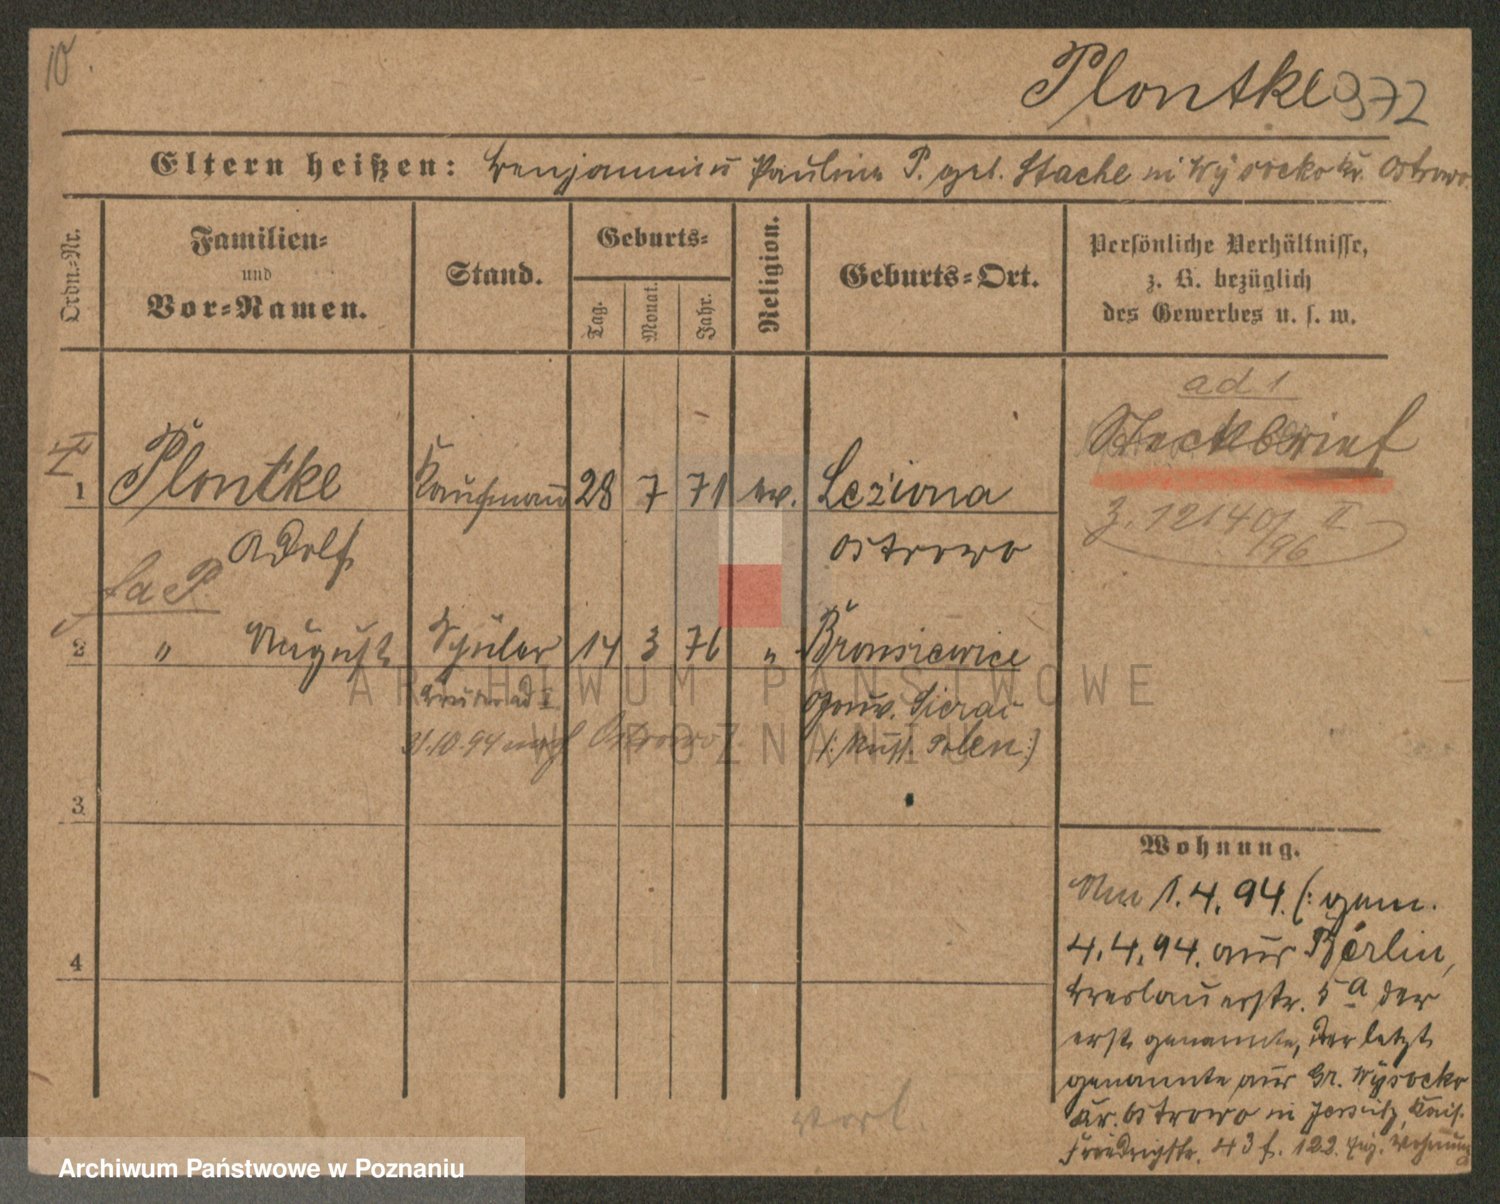 10
Plontke 372
Eltern heißen: Benjamin u Pauline P. geb. Stache in Wysocko Kr. Ostrowo
Ordn.=Nr.
Familien=
und
Vor=Namen.
Stand.
Geburts=
Tag.
Monat.
Jahr.
Religion.
Geburts=Ort.
Persönliche Verhältnisse,
z. B. bezüglich
des Gewerbes u. s. w.
ad 1
Steckbrief
1 Plontke Kaufmann 28 7 71 ev. Leziona
J. 12140/96 II
Adolf Ostrowo
fa P.
2 " August Schüler 14 3 76 " Bronsiewice
ad II Gouv. Sierać
31.10.94 nach Ostrowo (: Russ. Polen :)
3
4
Wohnung.
Am 1.4.94. (: gem.
4.4.94. aus Berlin,
Breslauerstr. 5a der
erst genannte, der letzt
genannte aus Gr. Wysocko
Kr. Ostrowo in Jersitz, Kais.
Friedrichstr. 43 f. 122. Wohnung
verl.
ARCHIWUM PAŃSTWOWE
W POZNANIU
Archiwum Państwowe w Poznaniu